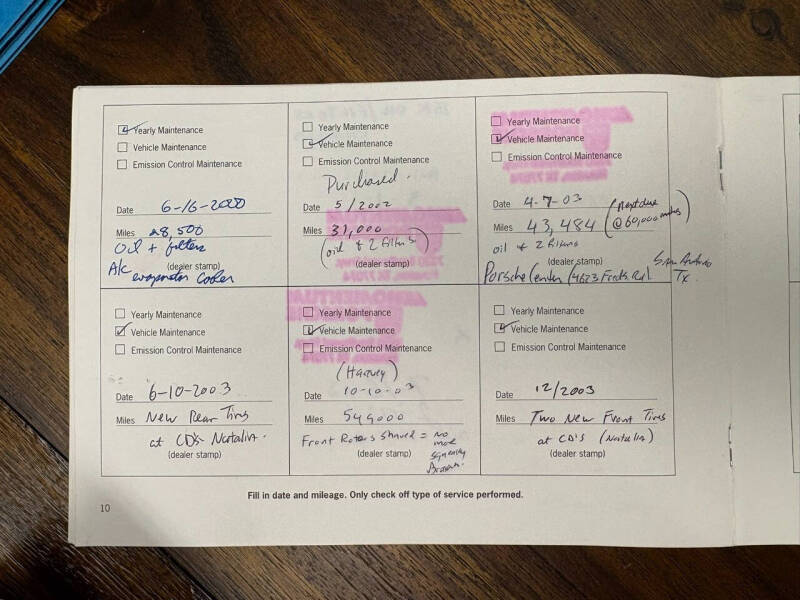 Yearly Maintenance
Vehicle Maintenance
Emission Control Maintenance
Date 6-16-2000
Miles 28,500
Oil + filters
(dealer stamp)
A/c evaporator cooler
Yearly Maintenance
Vehicle Maintenance
Emission Control Maintenance
Purchased.
Date 5/2002
Miles 31,000
(oil & 2 filters)
(dealer stamp)
Yearly Maintenance
Vehicle Maintenance
Emission Control Maintenance
Date 4-7-03
Miles 43,484 (Next due @ 60,000 miles)
oil & 2 filters
(dealer stamp)
Porsche Center San Antonio Tx.
Yearly Maintenance
Vehicle Maintenance
Emission Control Maintenance
Date 6-10-2003
Miles New Rear Tires
at CD's Natalia.
(dealer stamp)
Yearly Maintenance
Vehicle Maintenance
Emission Control Maintenance
(Harvey)
Date 10-10-03
Miles
Front Rotors shaved = no more
(dealer stamp)
Yearly Maintenance
Vehicle Maintenance
Emission Control Maintenance
Date 12/2003
Miles Two New Front Tires
at CD's (Natalia)
(dealer stamp)
Fill in date and mileage. Only check off type of service performed.
10